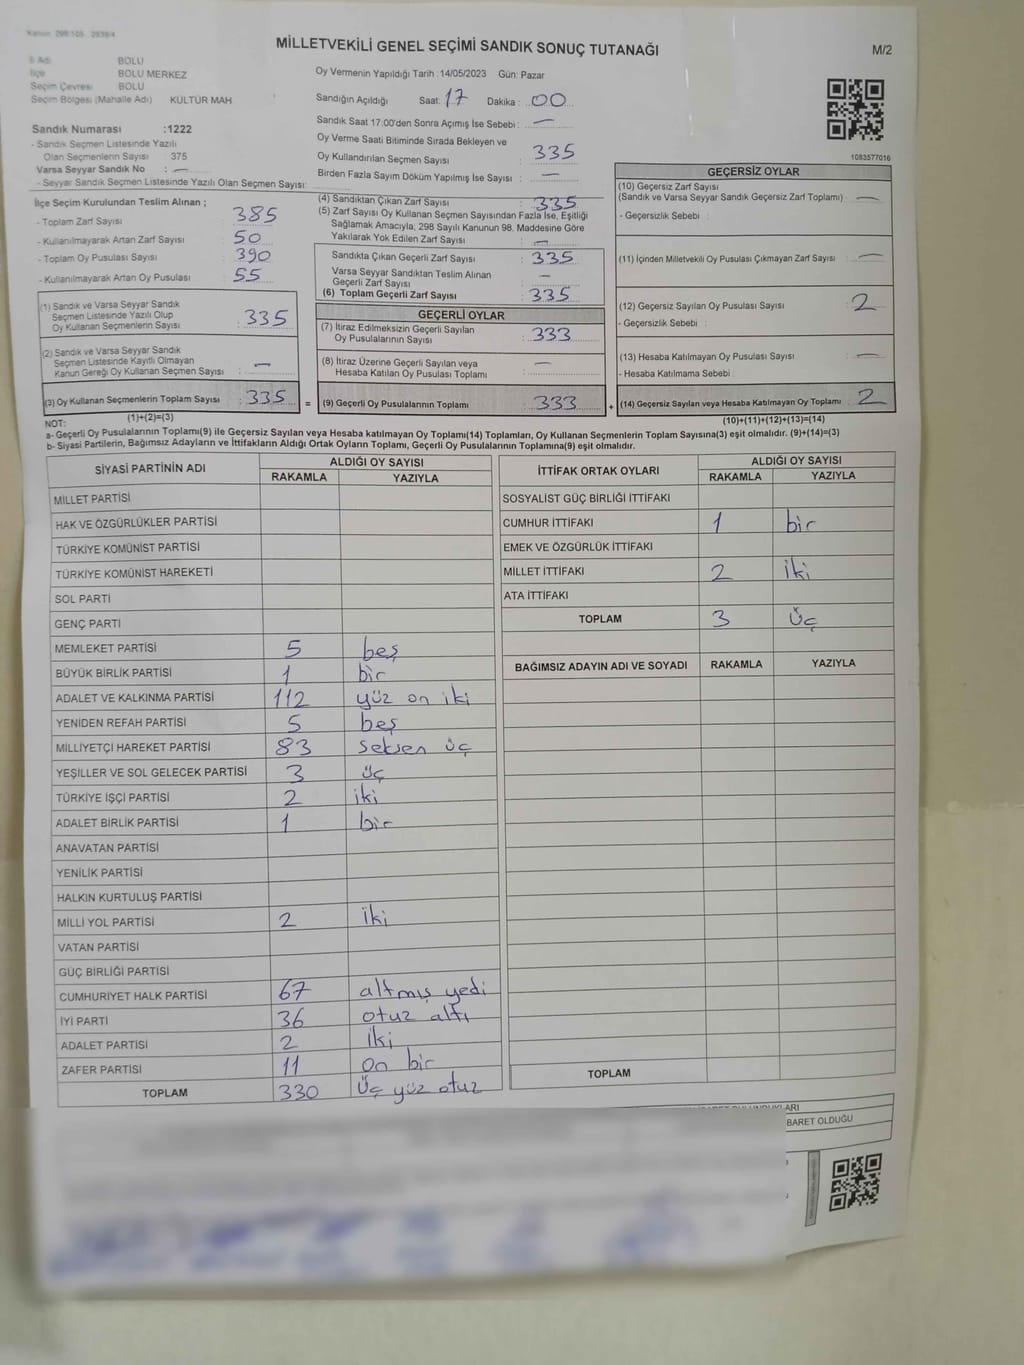 Kanun: 298/105 2839/4
MİLLETVEKİLİ GENEL SEÇİMİ SANDIK SONUÇ TUTANAĞI
M/2
İl Adı BOLU
İlçe BOLU MERKEZ
Seçim Çevresi BOLU
Seçim Bölgesi (Mahalle Adı) KÜLTÜR MAH.
Sandık Numarası :1222
- Sandık Seçmen Listesinde Yazılı
Olan Seçmenlerin Sayısı : 375
Varsa Seyyar Sandık No : —
- Seyyar Sandık Seçmen Listesinde Yazılı Olan Seçmen Sayısı:
Oy Vermenin Yapıldığı Tarih :14/05/2023 Gün: Pazar
Sandığın Açıldığı Saat: 17 Dakika : 00
Sandık Saat 17:00'den Sonra Açımış İse Sebebi : —
Oy Verme Saati Bitiminde Sırada Bekleyen ve
Oy Kullandırılan Seçmen Sayısı : 335
Birden Fazla Sayım Döküm Yapılmış İse Sayısı : —
1083577016
İlçe Seçim Kurulundan Teslim Alınan ;
- Toplam Zarf Sayısı : 385
- Kullanılmayarak Artan Zarf Sayısı : 50
- Toplam Oy Pusulası Sayısı : 390
- Kullanılmayarak Artan Oy Pusulası : 55
(1) Sandık ve Varsa Seyyar Sandık
Seçmen Listesinde Yazılı Olup
Oy Kullanan Seçmenlerin Sayısı : 335
(2) Sandık ve Varsa Seyyar Sandık
Seçmen Listesinde Kayıtlı Olmayan
Kanun Gereği Oy Kullanan Seçmen Sayısı : —
(3) Oy Kullanan Seçmenlerin Toplam Sayısı : 335
(1)+(2)=(3)
(4) Sandıktan Çıkan Zarf Sayısı : 335
(5) Zarf Sayısı Oy Kullanan Seçmen Sayısından Fazla İse, Eşitliği
Sağlamak Amacıyla; 298 Sayılı Kanunun 98. Maddesine Göre
Yakılarak Yok Edilen Zarf Sayısı : —
Sandıkta Çıkan Geçerli Zarf Sayısı : 335
Varsa Seyyar Sandıktan Teslim Alınan
Geçerli Zarf Sayısı : —
(6) Toplam Geçerli Zarf Sayısı : 335
GEÇERLİ OYLAR
(7) İtiraz Edilmeksizin Geçerli Sayılan
Oy Pusulalarının Sayısı : 333
(8) İtiraz Üzerine Geçerli Sayılan veya
Hesaba Katılan Oy Pusulası Toplamı : —
= (9) Geçerli Oy Pusulalarının Toplamı : 333 +
GEÇERSİZ OYLAR
(10) Geçersiz Zarf Sayısı
(Sandık ve Varsa Seyyar Sandık Geçersiz Zarf Toplamı) : —
- Geçersizlik Sebebi :
(11) İçinden Milletvekili Oy Pusulası Çıkmayan Zarf Sayısı : —
(12) Geçersiz Sayılan Oy Pusulası Sayısı : 2
- Geçersizlik Sebebi :
(13) Hesaba Katılmayan Oy Pusulası Sayısı : —
- Hesaba Katılmama Sebebi :
(14) Geçersiz Sayılan veya Hesaba Katılmayan Oy Toplamı : 2
(10)+(11)+(12)+(13)=(14)
NOT:
a- Geçerli Oy Pusulalarının Toplamı(9) ile Geçersiz Sayılan veya Hesaba katılmayan Oy Toplamı(14) Toplamları, Oy Kullanan Seçmenlerin Toplam Sayısına(3) eşit olmalıdır. (9)+(14)=(3)
b- Siyasi Partilerin, Bağımsız Adayların ve İttifakların Aldığı Ortak Oyların Toplamı, Geçerli Oy Pusulalarının Toplamına(9) eşit olmalıdır.
SİYASİ PARTİNİN ADI ALDIĞI OY SAYISI
RAKAMLA YAZIYLA
MİLLET PARTİSİ
HAK VE ÖZGÜRLÜKLER PARTİSİ
TÜRKİYE KOMÜNİST PARTİSİ
TÜRKİYE KOMÜNİST HAREKETİ
SOL PARTİ
GENÇ PARTİ
MEMLEKET PARTİSİ 5 beş
BÜYÜK BİRLİK PARTİSİ 1 bir
ADALET VE KALKINMA PARTİSİ 112 yüz on iki
YENİDEN REFAH PARTİSİ 5 beş
MİLLİYETÇİ HAREKET PARTİSİ 83 seksen üç
YEŞİLLER VE SOL GELECEK PARTİSİ 3 üç
TÜRKİYE İŞÇİ PARTİSİ 2 iki
ADALET BİRLİK PARTİSİ 1 bir
ANAVATAN PARTİSİ
YENİLİK PARTİSİ
HALKIN KURTULUŞ PARTİSİ
MİLLİ YOL PARTİSİ 2 iki
VATAN PARTİSİ
GÜÇ BİRLİĞİ PARTİSİ
CUMHURİYET HALK PARTİSİ 67 altmış yedi
İYİ PARTİ 36 otuz altı
ADALET PARTİSİ 2 iki
ZAFER PARTİSİ 11 on bir
TOPLAM 330 Üç yüz otuz
İTTİFAK ORTAK OYLARI ALDIĞI OY SAYISI
RAKAMLA YAZIYLA
SOSYALİST GÜÇ BİRLİĞİ İTTİFAKI
CUMHUR İTTİFAKI 1 bir
EMEK VE ÖZGÜRLÜK İTTİFAKI
MİLLET İTTİFAKI 2 iki
ATA İTTİFAKI
TOPLAM 3 üç
BAĞIMSIZ ADAYIN ADI VE SOYADI RAKAMLA YAZIYLA
TOPLAM
BARET OLDUĞU